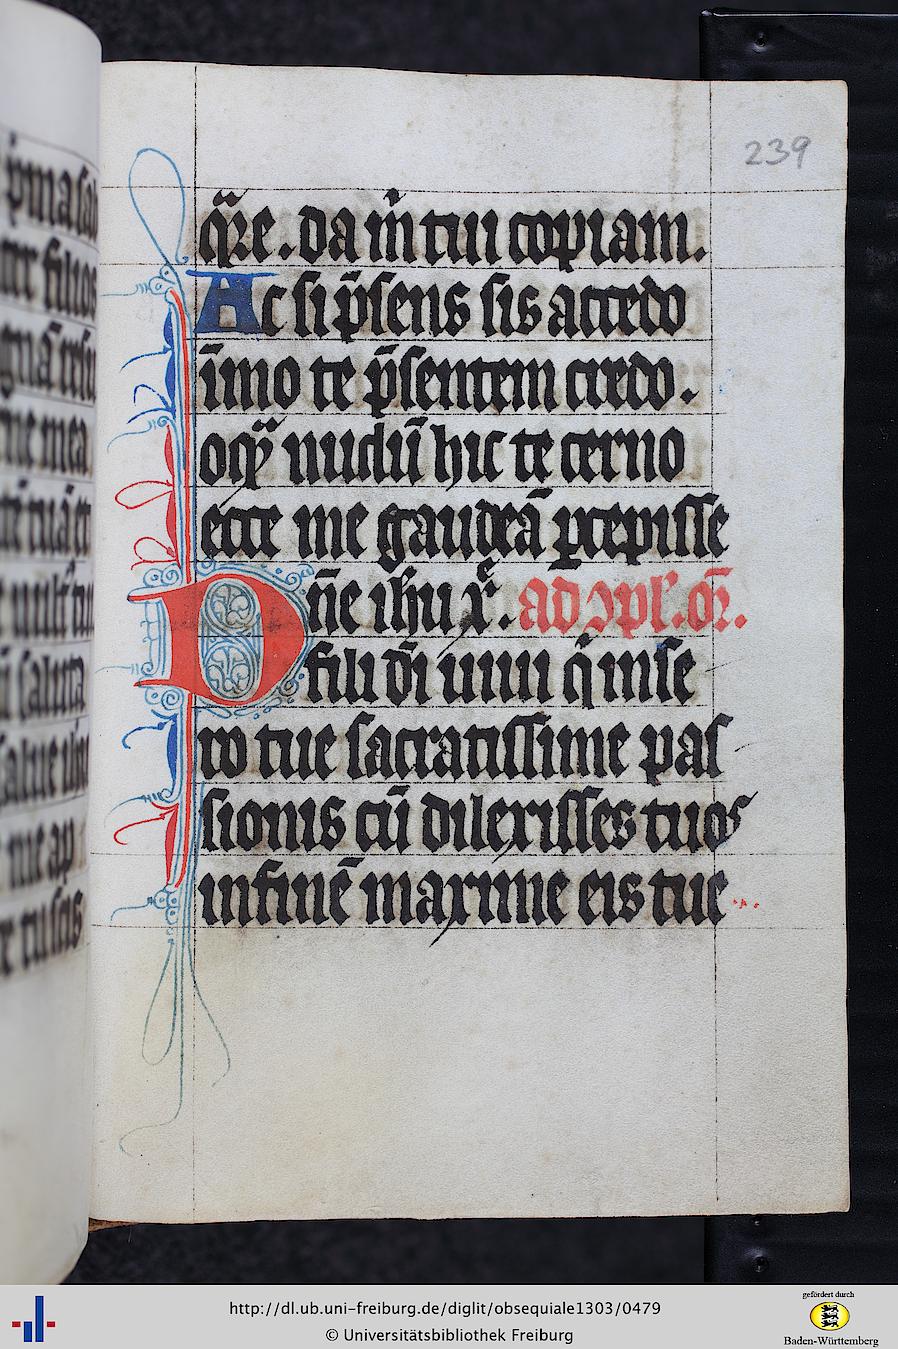 239
q̄re. da m̄ tui copiam.
Ac si p̄sens sis accedo
īmo te p̄sentem credo.
oq̢ nudū hic te cerno
ecce me gaudeā p̄cepisse
Dn̄e ihu xͤ. ad ɔpl'. or̄.
fili dī uiui q̄ in se
ro tue sacratissime pas
sionis cū dilexisses tuos
in finē maxime eis tue
http://dl.ub.uni-freiburg.de/diglit/obsequiale1303/0479
© Universitätsbibliothek Freiburg
gefördert durch
Baden-Württemberg